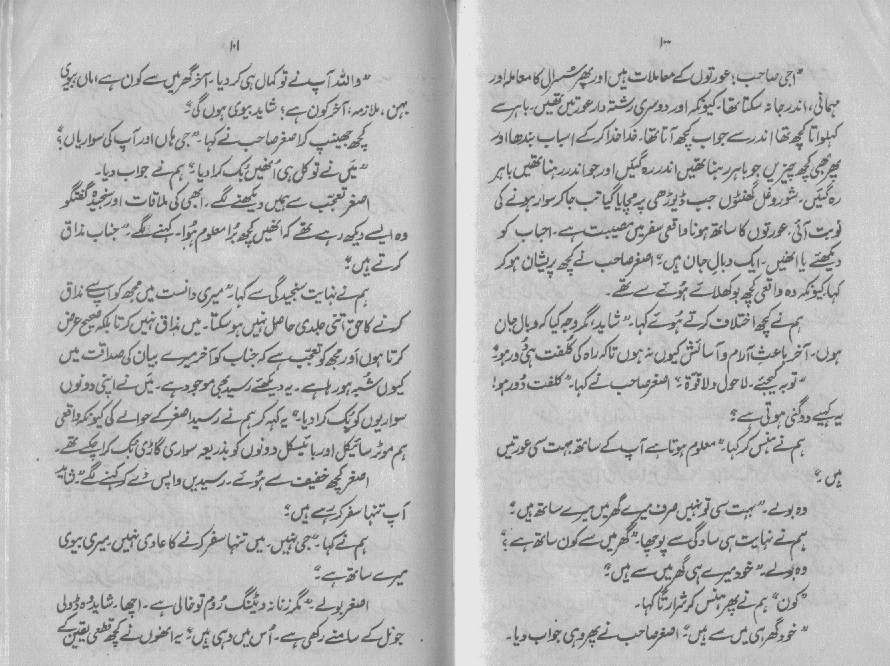 ۱۰۰
”اجی صاحب! عورتوں کے معاملات ہیں اور پھر سُسرال کا معاملہ اور
مہمانی، اندر جا نہ سکتا تھا۔ کیونکہ اور دوسری رشتہ دار عورتیں تھیں۔ باہر سے
کہلواتا کچھ تھا اندر سے جواب کچھ آتا تھا۔ خدا خدا کر کے اسباب بندھا اور
پھر بھی کچھ چیزیں جو باہر رہنا تھیں اندر رہ گئیں اور جو اندر رہنا تھیں باہر
رہ گئیں۔ شور و غل گھنٹوں جب ڈیوڑھی پر مچایا گیا تب جا کر سوار ہونے کی
نوبت آئی، عورتوں کا ساتھ ہونا واقعی سفر میں مصیبت ہے۔ احباب کو
دیکھتے یا انھیں۔ ایک وبالِ جان ہیں“ اصغر صاحب نے کچھ پریشان ہو کر
کہا کیونکہ وہ واقعی کچھ بوکھلائے ہوئے سے تھے۔
ہم نے کچھ اختلاف کرتے ہوئے کہا۔ ”شاید، مگر وجہ کیا کہ وبالِ جان
ہوں۔ آخر باعثِ آرام و آسائش کیوں نہ ہوں تاکہ راہ کی کُلفت ہی دُور ہو“
”توبہ کیجئے۔ لاحول ولا قوۃ“ اصغر صاحب نے کہا۔ ”کلفت دُور ہو!
یہ کہیے دوگنی ہوتی ہے؟
ہم نے ہنس کر کہا۔ ”معلوم ہوتا ہے آپ کے ساتھ بہت سی عورتیں
ہیں“
وہ بولے۔ ”بہت سی تو نہیں صرف میرے گھر میں میرے ساتھ ہیں“
ہم نے نہایت ہی سادگی سے پوچھا۔ ”گھر میں سے کون ساتھ ہے؟“
وہ بولے۔ ”خود میرے ہی گھر میں سے ہیں“
”کون“ ہم نے پھر ہنس کو شرارتاً کہا۔
”خود گھر ہی میں سے ہیں“ اصغر صاحب نے پھر وہی جواب دیا۔
۱۰۱
”واللہ آپ نے تو کمال ہی کر دیا۔ آخر گھر میں سے کون ہے، اماں بیوی
بہن، ملازمہ، آخر کون ہے؛ شاید بیوی ہوں گی“
کچھ جھینپ کر اصغر صاحب نے کہا۔ ”جی ہاں اور آپ کی سواریاں؟
”میں نے تو کل ہی اُنھیں بُک کرا دیا“ ہم نے جواب دیا۔
اصغر تعجب سے ہمیں دیکھنے لگے۔ ابھی کی ملاقات اور سنجیدہ گفتگو
وہ ایسے دیکھ رہے تھے کہ انھیں کچھ بُرا معلوم ہوا۔ کہنے لگے۔ ”جناب مذاق
کرتے ہیں“
ہم نے نہایت سنجیدگی سے کہا۔ ”میری دانست میں مجھ کو آپ سے مذاق
کرنے کا حق اتنی جلدی حاصل نہیں ہو سکتا۔ میں مذاق نہیں کرتا بلکہ صحیح عرض
کرتا ہوں اور مجھ کو تعجب ہے کہ جناب کو آخر میرے بیان کی صداقت میں
کیوں شُبہ ہو رہا ہے۔ یہ دیکھئے رسید بھی موجود ہے۔ میں نے اپنی دونوں
سواریوں کو بُک کرا دیا“ یہ کہہ کر ہم نے رسید اصغر کے حوالے کی کیونکہ واقعی
ہم موٹر سائیکل اور بائیسکل دونوں کو بذریعہ سواری گاڑی بُک کرا چکے تھے۔
اصغر کچھ خفیف سے ہوئے۔ رسیدیں واپس دے کر کہنے لگے ”شاید
آپ تنہا سفر کر رہے ہیں“
ہم نے کہا۔ ”جی نہیں۔ میں تنہا سفر کرنے کا عادی نہیں، میری بیوی
میرے ساتھ ہے“
اصغر بولے۔ ”مگر زنانہ ویٹنگ رُوم تو خالی ہے۔ اچھا۔ شاید وہ ڈولی
جو نل کے سامنے رکھی ہے۔ اُس میں وہی ہیں“ یہ انھوں نے کچھ قطعی یقین کے